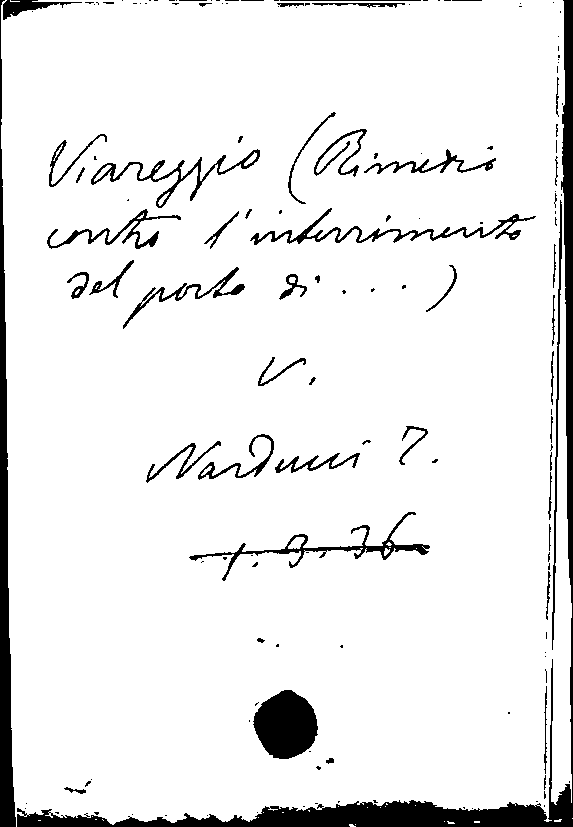 Viareggio (Rimedio
contro l'interrimento
del porto di ...)
V.
Narducci T.
1.3.36